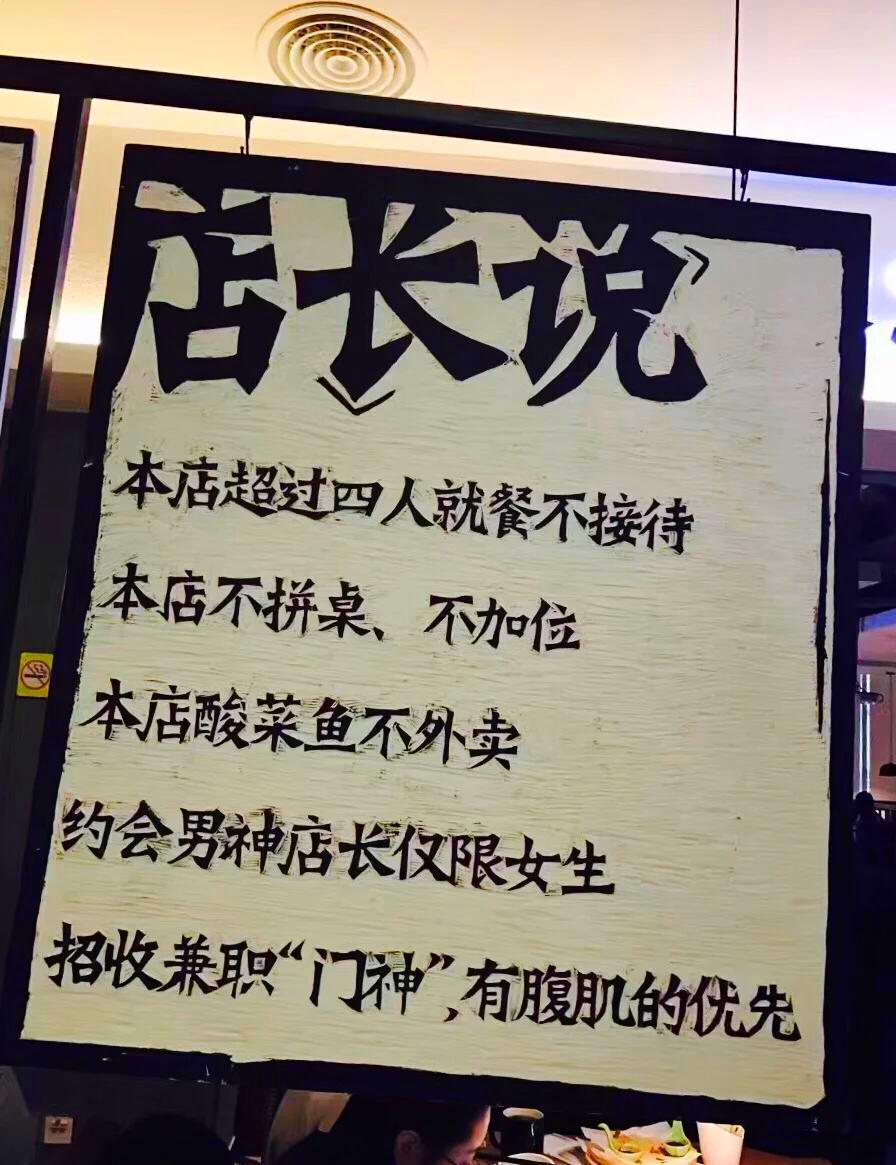 店长说
本店超过四人就餐不接待
本店不拼桌、不加位
本店酸菜鱼不外卖
约会男神店长仅限女生
招收兼职“门神”,有腹肌的优先